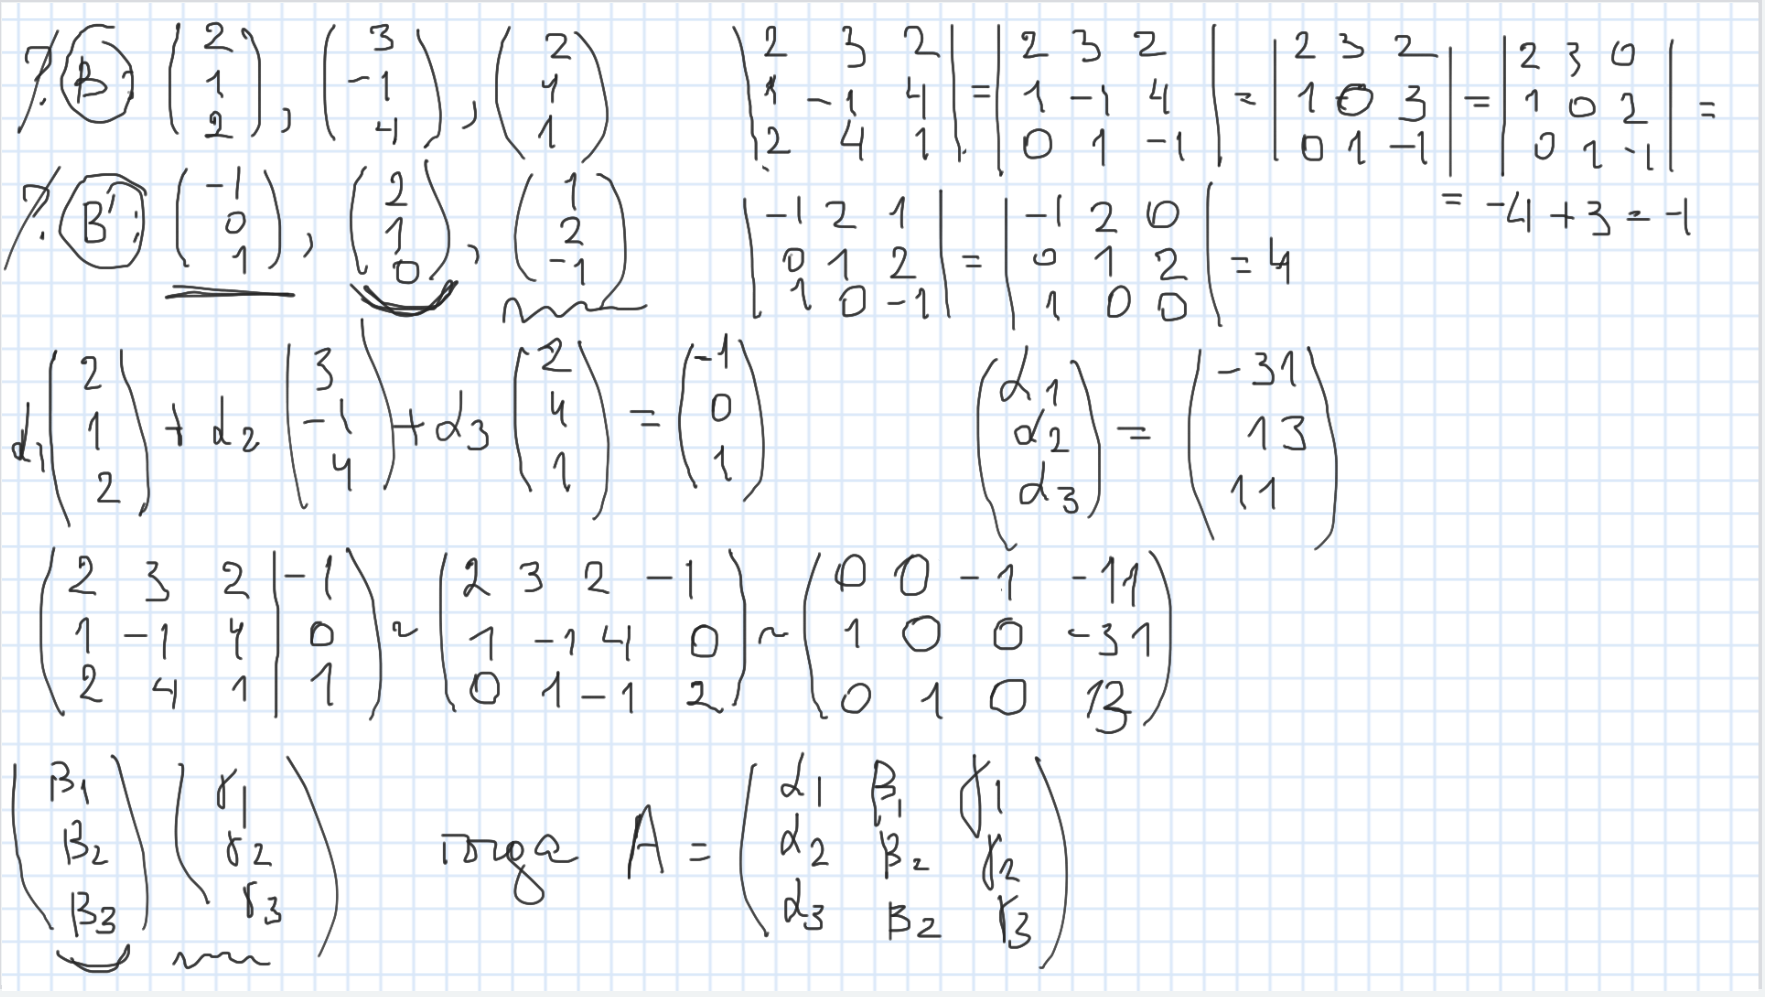 ? B: (2 1 2), (3 -1 4), (2 4 1) |2 3 2; 1 -1 4; 2 4 1| = |2 3 2; 1 -1 4; 0 1 -1| = |2 3 2; 1 0 3; 0 1 -1| = |2 3 0; 1 0 2; 0 1 -1| =
= -4 + 3 = -1
? B': (-1 0 1), (2 1 0), (1 2 -1) |-1 2 1; 0 1 2; 1 0 -1| = |-1 2 0; 0 1 2; 1 0 0| = 4
α1 (2 1 2) + α2 (3 -1 4) + α3 (2 4 1) = (-1 0 1) (α1 α2 α3) = (-31 13 11)
(2 3 2 | -1; 1 -1 4 | 0; 2 4 1 | 1) ~ (2 3 2 -1; 1 -1 4 0; 0 1 -1 2) ~ (0 0 -1 -11; 1 0 0 -31; 0 1 0 13)
(β1 β2 β3) (γ1 γ2 γ3) тогда A = (α1 β1 γ1; α2 β2 γ2; α3 β2 γ3)